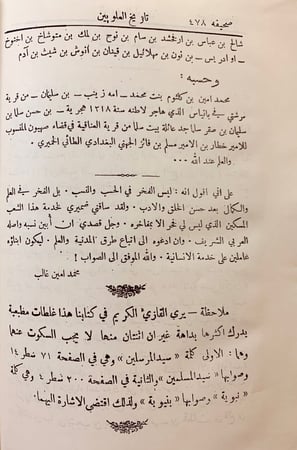 صحيفه ٤٧٨ تاريخ العلويين
شالخ بن عباس بن ارفخشد بن سام بن نوح بن لمك بن متوشلخ بن اخنوخ
او ادريس - بن نون بن مهلاليل بن قينان بن أنوش بن شيث بن آدم
وحسبه :
محمد امين بن كلثوم بنت محمد ... امه زينب - بن سليمان - من قرية
مرشتي في ياياداغي الذي هاجر لاطنه سنة ١٢١٨ هجرية - بن حسن سلما بن
سليمان بن صقر سلما جد عائلة بيت سلما من قرية العنافية في قضاء صهيون المنسوب
للامير خطار بن الامير مسلم بن فائز الجهني البغدادي الطائي الحميري .
والعلم عند الله ...
على اني اقول انه : ليس الفخر في الحسب والنسب . بل الفخر في العلم
والكمال بعد حسن الخلق والادب . ولقد ساقني ضميري لخدمة هذا الشعب
المسكين الذي ليس لي فخر الا بمفاخره . وجل قصدي أن أبين نسبه واصله
العربي الشريف . وان ادعوه الى اتباع طرق المدنية والعلم . ليكون ابناؤه
عاملين على خدمة الانسانية . والله الموفق الى الصواب !
محمد امين غالب
ملاحظة – يرى القارئ الكريم في كتابنا هذا غلطات مطبعية
يدرك اكثرها بداهة غير ان اثنتان منها لا يجب السكوت عنها
وهما : الاولى كلمة « سيد المرسلين » وهي في الصفحة ٧١ سطر ١٤
وصوابها « سيد المسلمين » والثانية في الصفحة ٢٠٠ سطر ٤ وهي كلمة
« نبوية » وصوابها « بنيوية » ولذلك اقتضى الاشارة اليهما .